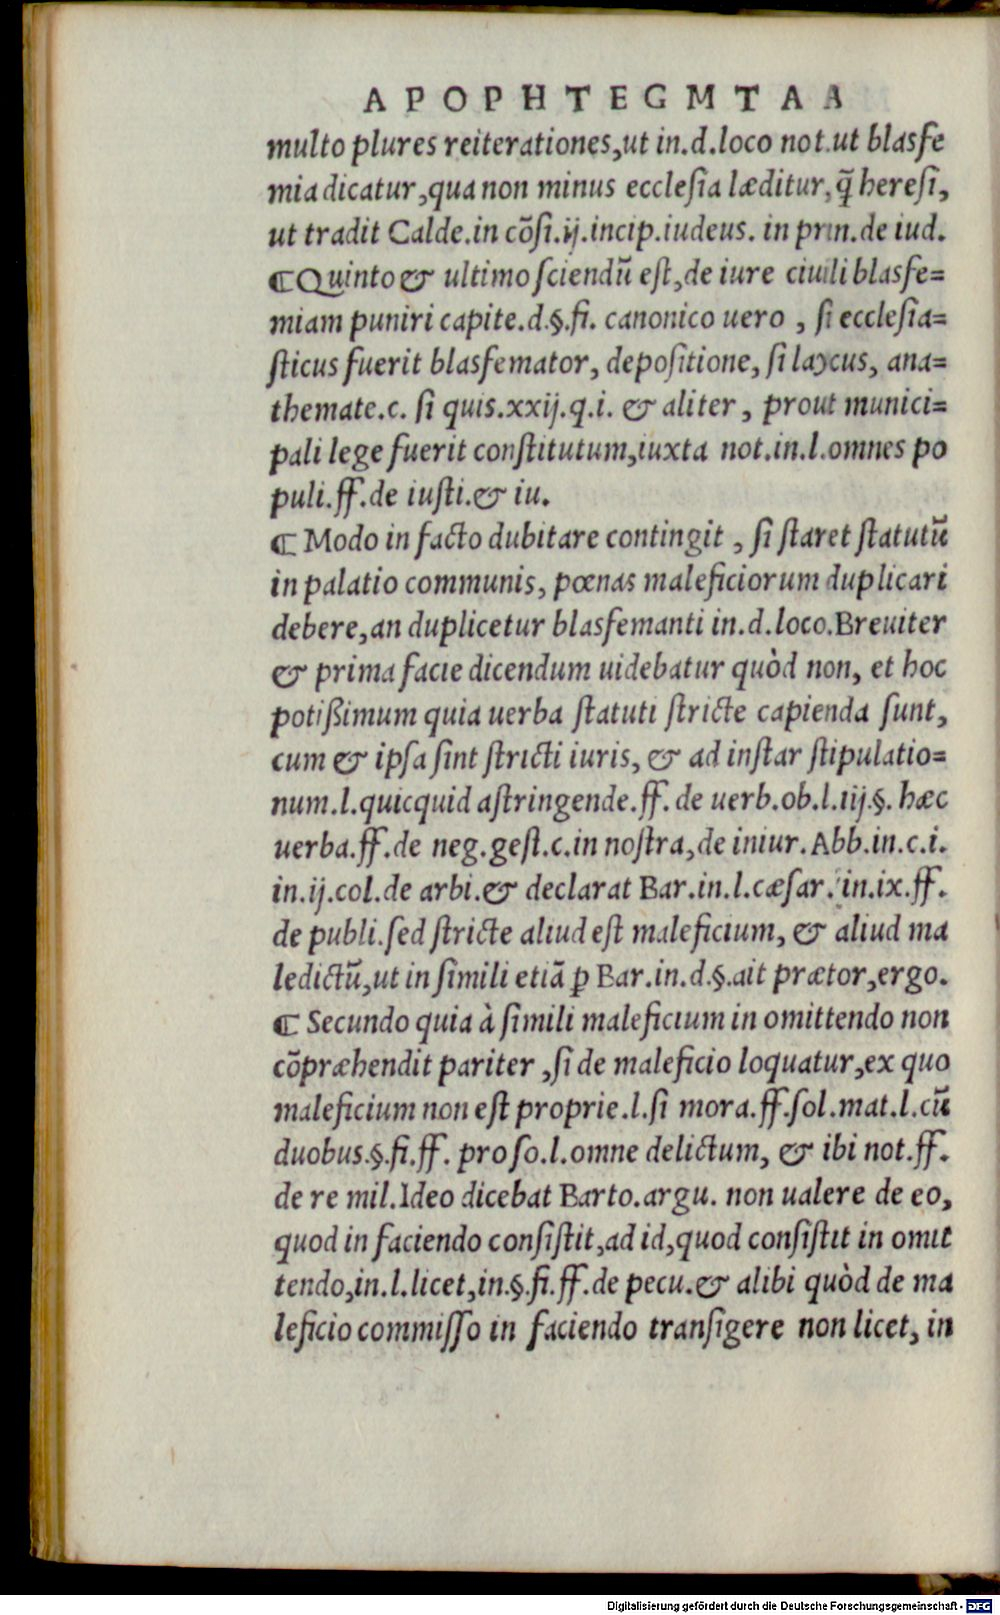 APOPHTEGMTAA
multo plures reiterationes,ut in.d.loco not.ut blasfe
mia dicatur,qua non minus ecclesia læditur,q̃ heresi,
ut tradit Calde.in cõsi.ij.incip.iudeus. in prin.de iud.
¶Quinto & ultimo sciendũ est,de iure ciuili blasfe=
miam puniri capite.d.§.fi. canonico uero , si ecclesia=
sticus fuerit blasfemator, depositione, si laycus, ana=
themate.c. si quis.xxij.q.i. & aliter , prout munici=
pali lege fuerit constitutum,iuxta not.in.l.omnes po
puli.ff.de iusti.& iu.
¶ Modo in facto dubitare contingit , si staret statutũ
in palatio communis, pœnas maleficiorum duplicari
debere,an duplicetur blasfemanti in.d.loco.Breuiter
& prima facie dicendum uidebatur quòd non, et hoc
potißimum quia uerba statuti stricte capienda sunt,
cum & ipsa sint stricti iuris, & ad instar stipulatio=
num.l.quicquid astringende.ff. de uerb.ob.l.iij.§. hæc
uerba.ff.de neg.gest.c.in nostra,de iniur.Abb.in.c.i.
in.ij.col.de arbi.& declarat Bar.in.l.cæsar.in.ix.ff.
de publi.sed stricte aliud est maleficium, & aliud ma
ledictũ,ut in simili etiã ꝑ Bar.in.d.§.ait prætor,ergo.
¶ Secundo quia à simili maleficium in omittendo non
cõpræhendit pariter ,si de maleficio loquatur,ex quo
maleficium non est proprie.l.si mora.ff.sol.mat.l.cũ
duobus.§.fi.ff. pro so.l.omne delictum, & ibi not.ff.
de re mil.Ideo dicebat Barto.argu. non ualere de eo,
quod in faciendo consistit,ad id,quod consistit in omit
tendo,in.l.licet,in.§.fi.ff.de pecu.& alibi quòd de ma
leficio commisso in faciendo transigere non licet, in
Digitalisierung gefördert durch die Deutsche Forschungsgemeinschaft - DFG